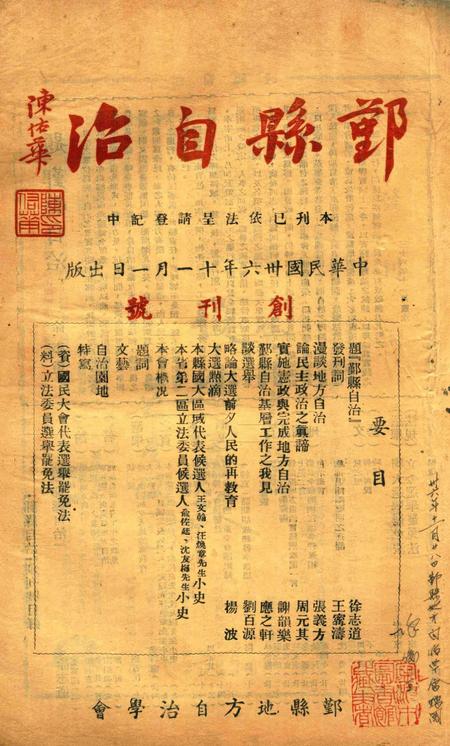 鄞縣自治
陳佶華
本刊已依法呈請登記中
中華民國卅六年十一月一日出版
創刊號
要目
題『鄞縣自治』 徐志道
發刊詞 王寵濤
漫談地方自治 張義方
論民主政治之真諦 周元其
實施憲政與完成地方自治 謝韻樂
鄞縣自治基層工作之我見 應之軒
談選舉 劉百源
略論大選前夕人民的再教育 楊波
大選點滴
本縣國大區域代表候選人王文翰、汪煥章先生小史
本省第二區立法委員候選人俞佐廷、沈友梅先生小史
本會概况
題詞
文藝
自治園地
特寫
(資)國民大會代表選舉罷免法
(料)立法委員選舉罷免法
鄞縣地方自治學會